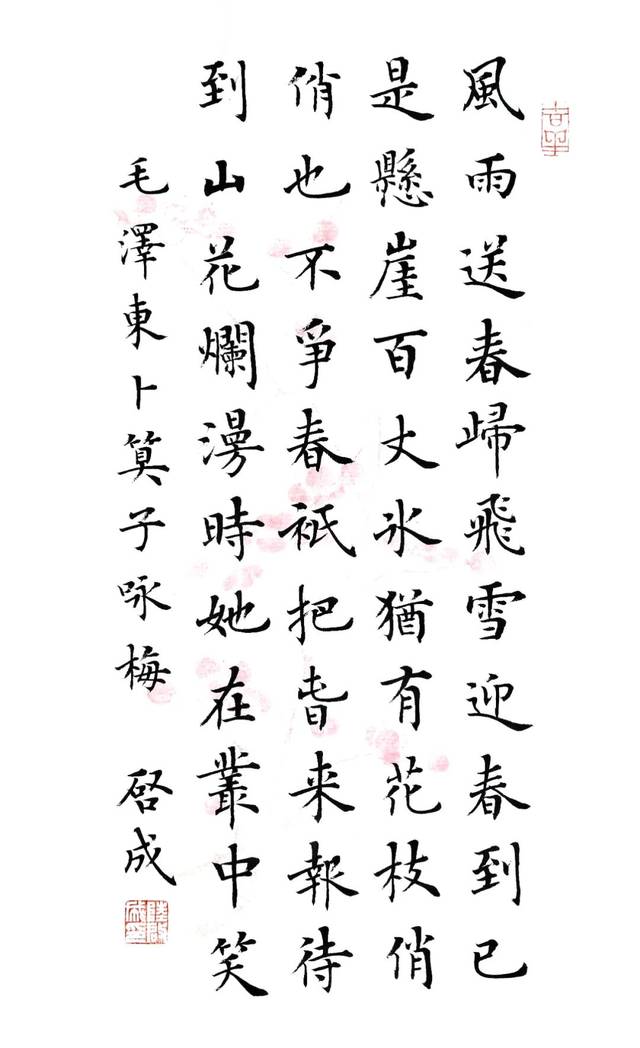 風雨送春歸飛雪迎春到已
是懸崖百丈冰猶有花枝俏
俏也不爭春祇把旾来報待
到山花爛漫時她在叢中笑
毛澤東卜算子咏梅 启成